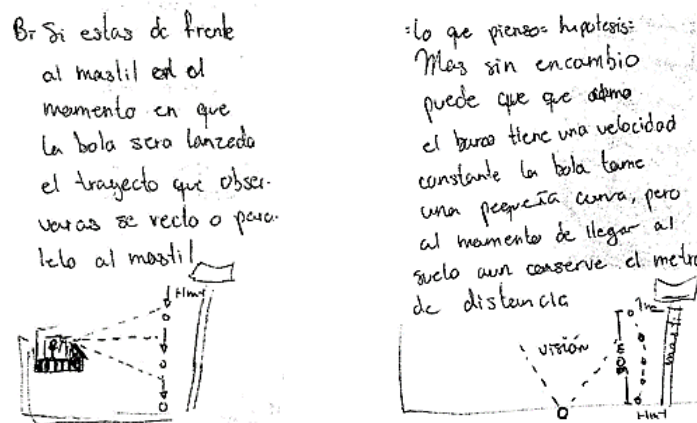 B: Si estas de frente
al mastil en el
momento en que
la bola sera lanzada
el trayecto que obser-
varas se recto o para-
lelo al mastil
1mt
:lo que pienso= hupotesis:
Mas sin encambio
puede que que como
el barco tiene una velocidad
constante la bola tome
una pequeña curva, pero
al momento de llegar al
suelo aun conserve el metro
de distancia
1m
visión
mastil
1mt